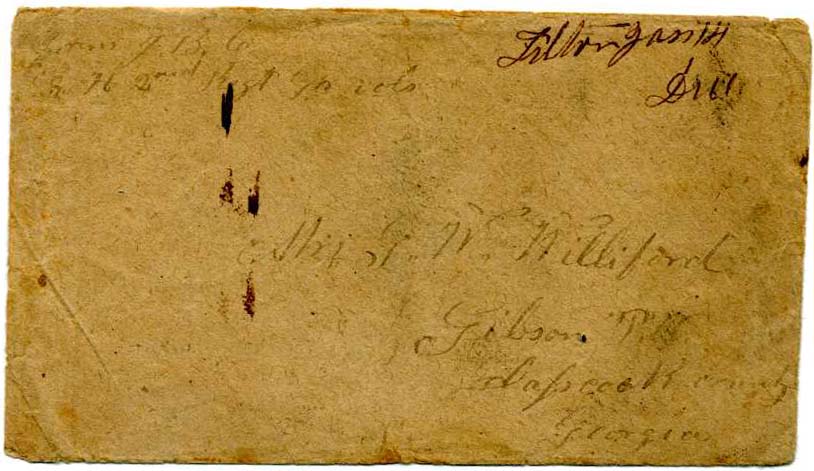 From J. B. Co
Co H 2nd Regt Ga vols
Tilton Ga 14
Due
W. Williford
Gibson P.
Glasscock county
Georgia